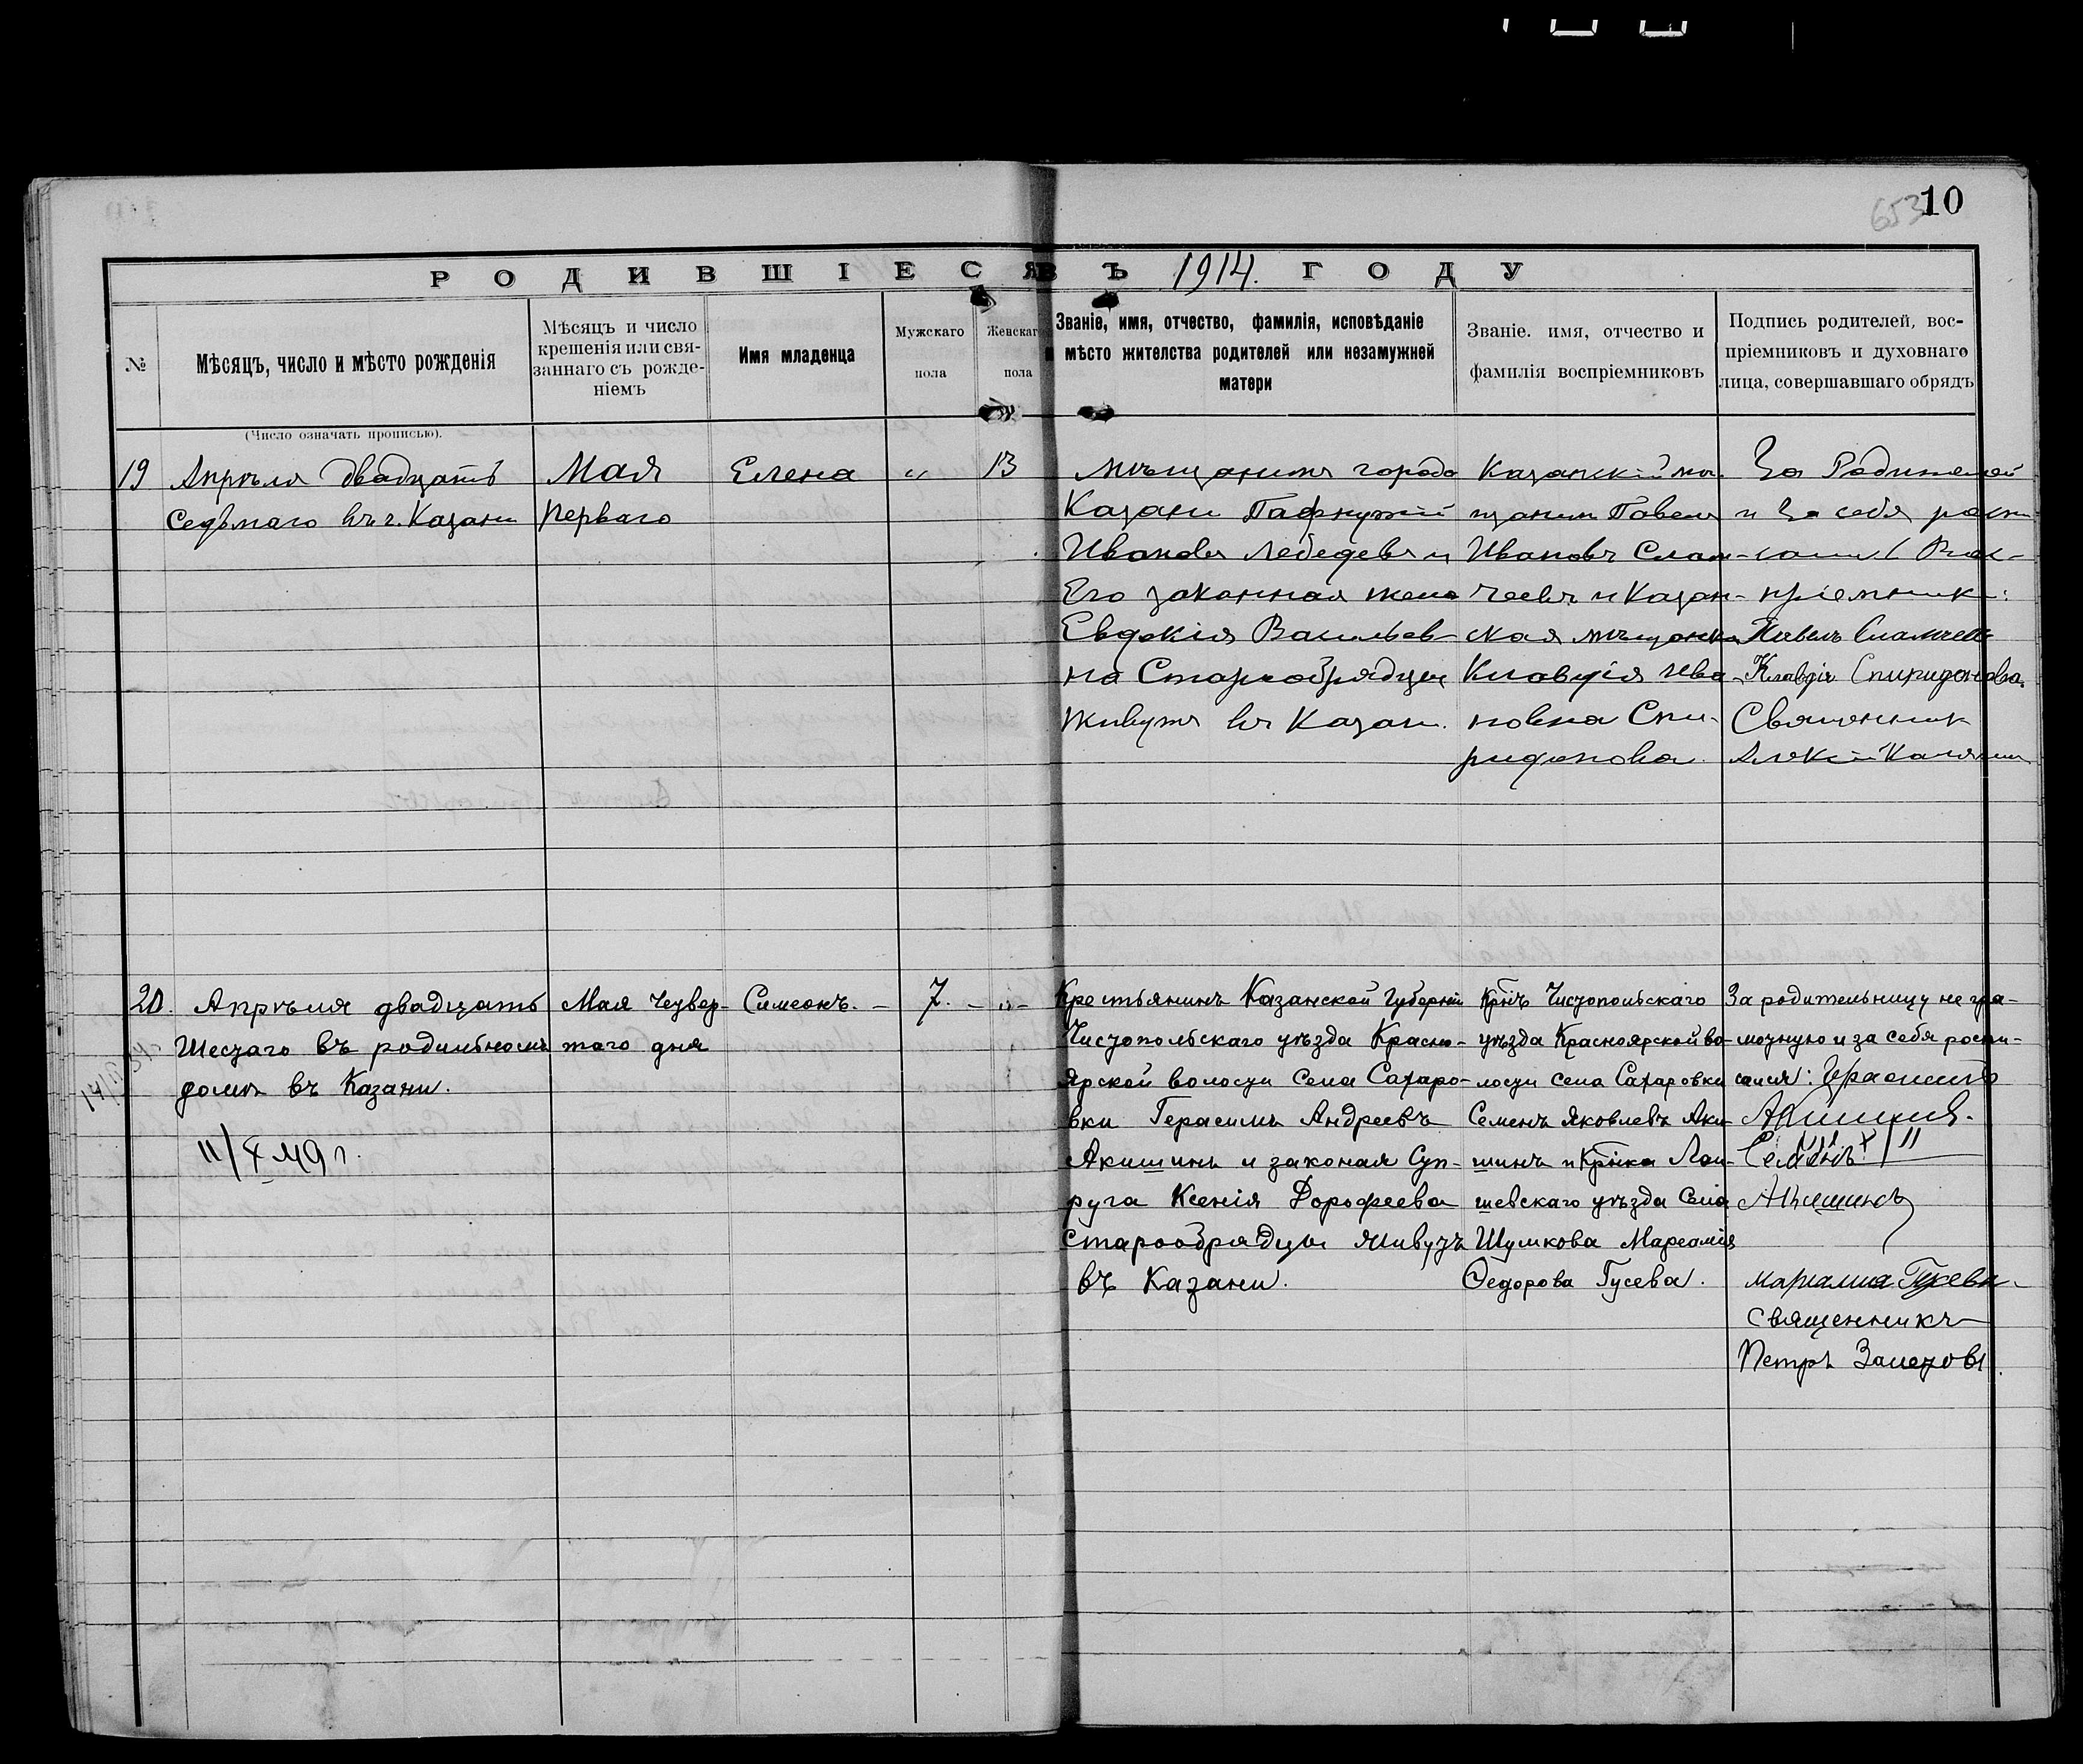 653 10
РОДИВШІЕСЯ ВЪ 1914. ГОДУ
№
Мѣсяцъ, число и мѣсто рожденія
Мѣсяцъ и число
крещенія или свя-
заннаго съ рожде-
ніемъ
Имя младенца
Мужскаго
пола
Женскаго
пола
Званіе, имя, отчество, фамилія, исповѣданіе
и мѣсто жителства родителей или незамужней
матери
Званіе. имя, отчество и
фамилія воспріемниковъ
Подпись родителей, вос-
пріемниковъ и духовнаго
лица, совершавшаго обрядъ
(Число означать прописью).
19
Апрѣля двадцать
Седьмаго въ г. Казани
Мая
перваго
Елена
"
13
Мѣщанинъ города
Казани Пафнутій
Ивановъ Лебедевъ и
Его законная жена
Евдокія Васильев-
на Старообрядцы
живутъ въ Казани.
Казанскій мѣ-
щанинъ Павелъ
Ивановъ Слам-
чеевъ и Казан-
ская мѣщанка
Клавдія Ива-
новна Спи-
ридонова.
За Родителей
и За себя
пріемники:
Павелъ
Клавдія Спиридонова.
Священник
20.
Апрѣля двадцать
Шестаго въ родильномъ
домѣ въ Казани.
11/X 49 г.
Мая Четвер-
таго дня
Симеонъ. -
7. -
"-
Крестьянинъ Казанской Губерніи
Чистопольскаго уѣзда Красно-
ярской волости Села Сахаро-
вки Герасимъ Андреевъ
Акишинъ и законая Суп-
руга Ксенія Дорофеева
Старообрядцы живутъ
въ Казани.
Кр̃нъ Чистопольскаго
уѣзда Красноярской во-
лости села Сахаровки
Семенъ Яковлевъ Аки-
шинъ и Кр̃нка Лаи-
шевскаго уѣзда Села
Шумкова Мареамія
Ѳедорова Гусева.
За родительницу не гра-
мотную и за себя роспи-
сался: Герасимъ
Акишинъ.
Семенъ
Акишинъ
Гусева
Священникъ
Петръ Залетовъ.